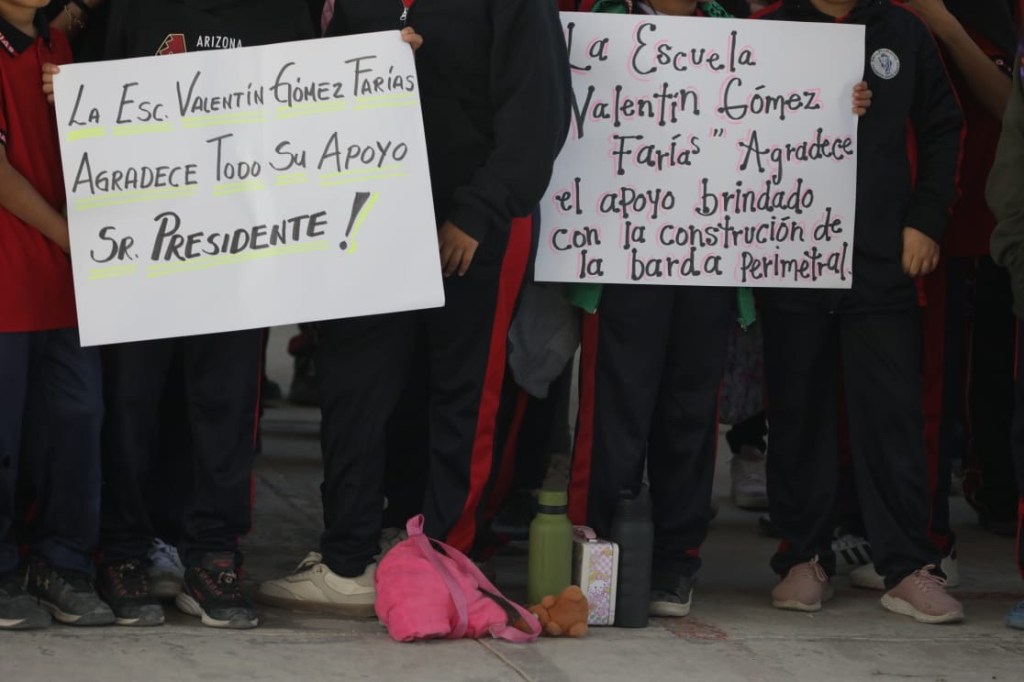 ARIZONA
LA ESC. VALENTÍN GÓMEZ FARÍAS
AGRADECE TODO SU APOYO
SR. PRESIDENTE!
La Escuela
"Valentín Gómez
Farías" Agradece
el apoyo brindado
con la construción de
la barda perimetral.